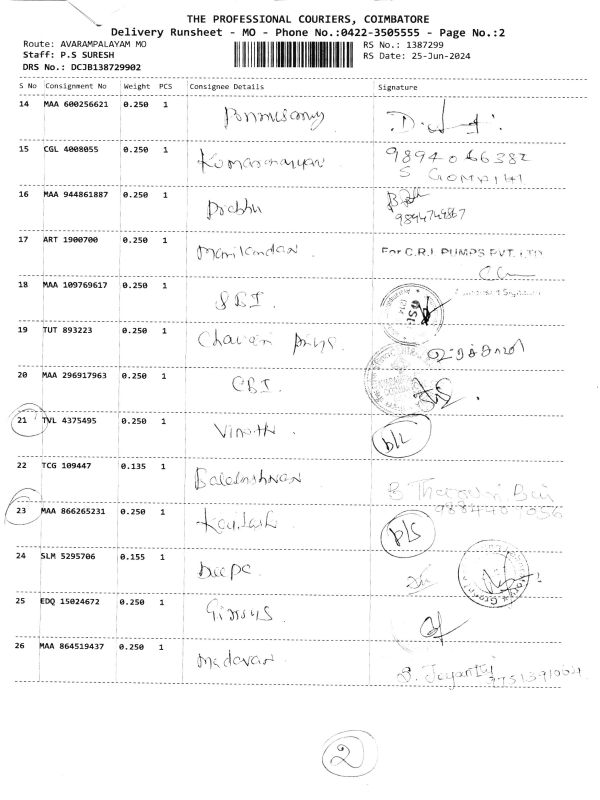 THE PROFESSIONAL COURIERS, COIMBATORE
Delivery Runsheet - MO - Phone No.:0422-3505555 - Page No.:2
Route: AVARAMPALAYAM MO RS No.: 1387299
Staff: P.S SURESH RS Date: 25-Jun-2024
DRS No.: DCJB138729902
S No Consignment No Weight PCS Consignee Details Signature
14 MAA 600256621 0.250 1 Ponnusamy
15 CGL 4008055 0.250 1 9894066382
S GOMATHI
16 MAA 944861887 0.250 1 Prabhu
9894749867
17 ART 1900700 0.250 1 Manikandan For C.R.I PUMPS PVT. LTD
18 MAA 109769617 0.250 1 SBI
19 TUT 893223 0.250 1
20 MAA 296917963 0.250 1 CBI.
21 TVL 4375495 0.250 1 Vinoth D/L
22 TCG 109447 0.135 1 Balakrishnan
23 MAA 866265231 0.250 1 Kailash
24 SLM 5295706 0.155 1 Deepa
25 EDQ 15024672 0.250 1
26 MAA 864519437 0.250 1 Madavan S. Jeyanthi
2